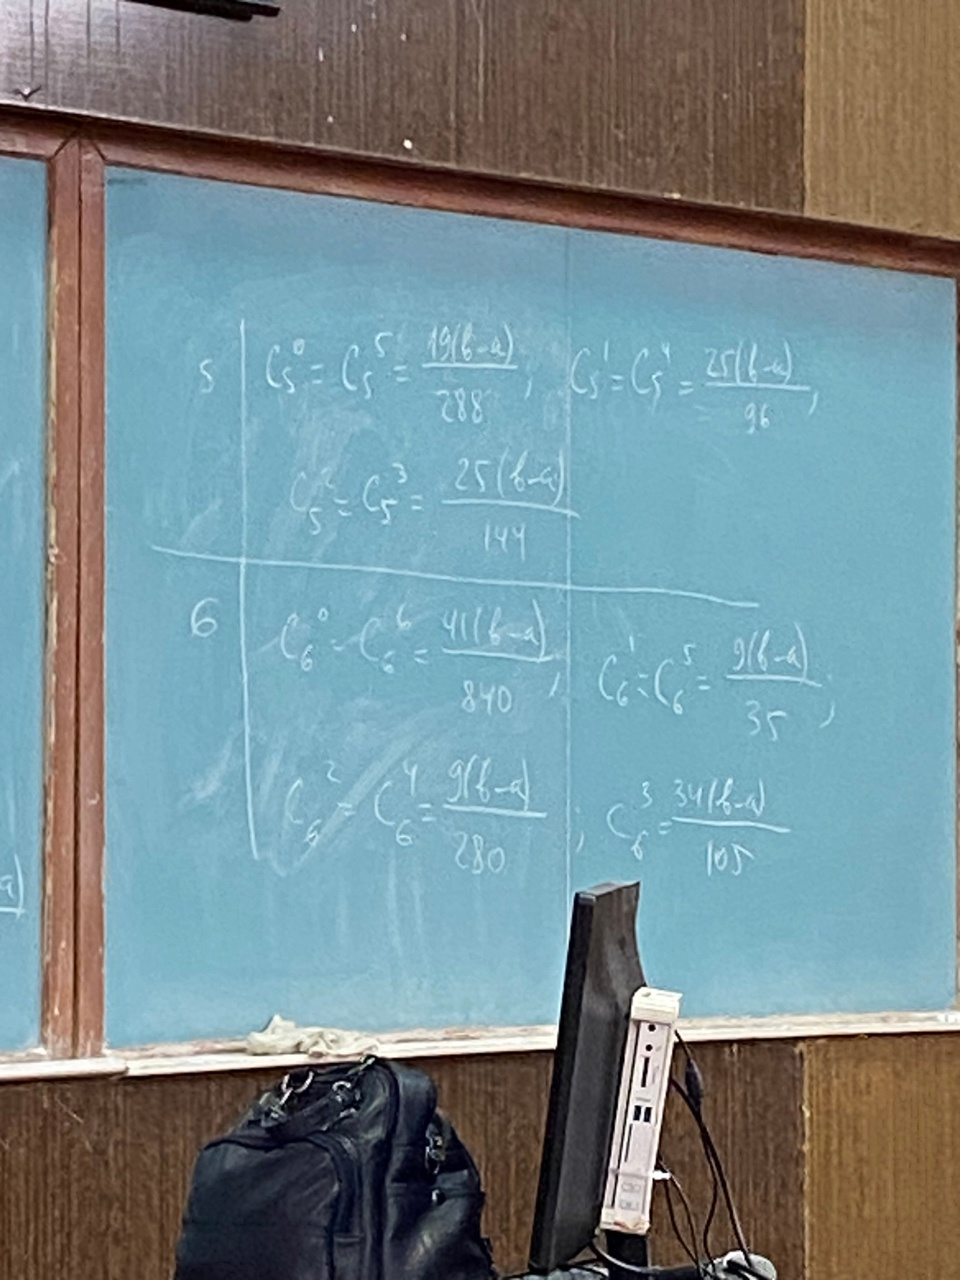 5 C₅⁰ = C₅⁵ = 19(b-a)/288 ; C₅¹ = C₅⁴ = 25(b-a)/96 ,
C₅² = C₅³ = 25(b-a)/144
6 C₆⁰ = C₆⁶ = 41(b-a)/840 ; C₆¹ = C₆⁵ = 9(b-a)/35 ;
C₆² = C₆⁴ = 9(b-a)/280 ; C₆³ = 34(b-a)/105
a)